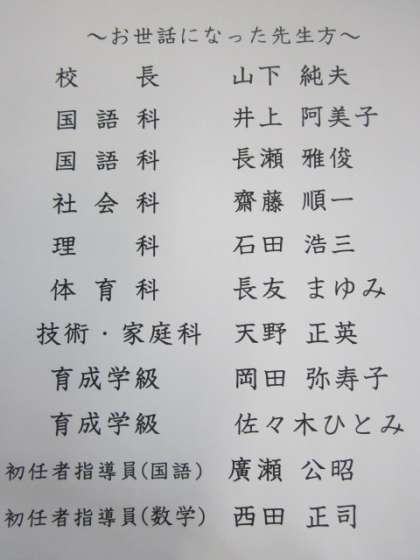 ～お世話になった先生方～
校長 山下 純夫
国語科 井上 阿美子
国語科 長瀬 雅俊
社会科 齋藤 順一
理科 石田 浩三
体育科 長友 まゆみ
技術・家庭科 天野 正英
育成学級 岡田 弥寿子
育成学級 佐々木ひとみ
初任者指導員(国語) 廣瀬 公昭
初任者指導員(数学) 西田 正司